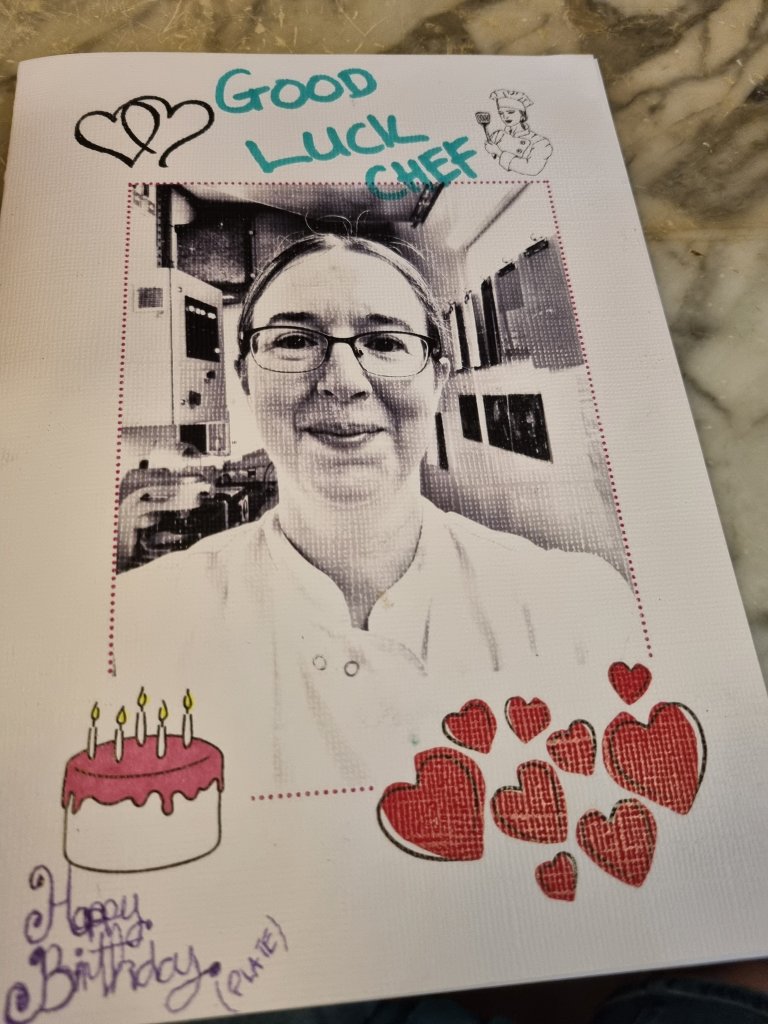 GOOD
LUCK
CHEF
Happy
Birthday
(PLATE)